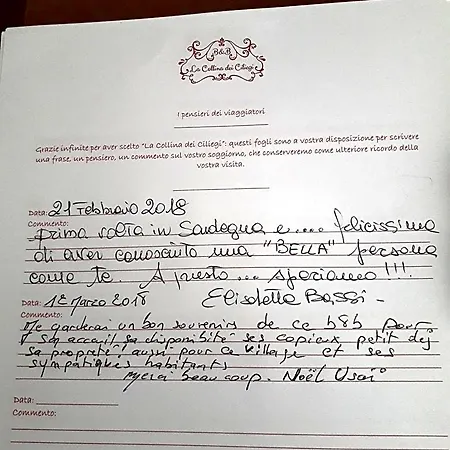 B&B
La Collina dei Ciliegi
I pensieri dei viaggiatori
Grazie infinite per aver scelto "La Collina dei Ciliegi": questi fogli sono a vostra disposizione per scrivere
una frase, un pensiero, un commento sul vostro soggiorno, che conserveremo come ulteriore ricordo della
vostra visita.
Data: 21 Febbraio 2018
Commento:
Prima volta in Sardegna e.... felicissima
di aver conosciuto una "BELLA" persona
come te. A presto... speriamo!!!
Elisabetta Bassi -
Data: 12 Marzo 2018
Commento:
Je garderai un bon souvenirs de ce b&b pour
son accueil sa disponibilité ses copieux petit dej
sa propreté! aussi pour ce village et ses
sympatiques habitants
Merci beaucoup. Noël
Data:
Commento: